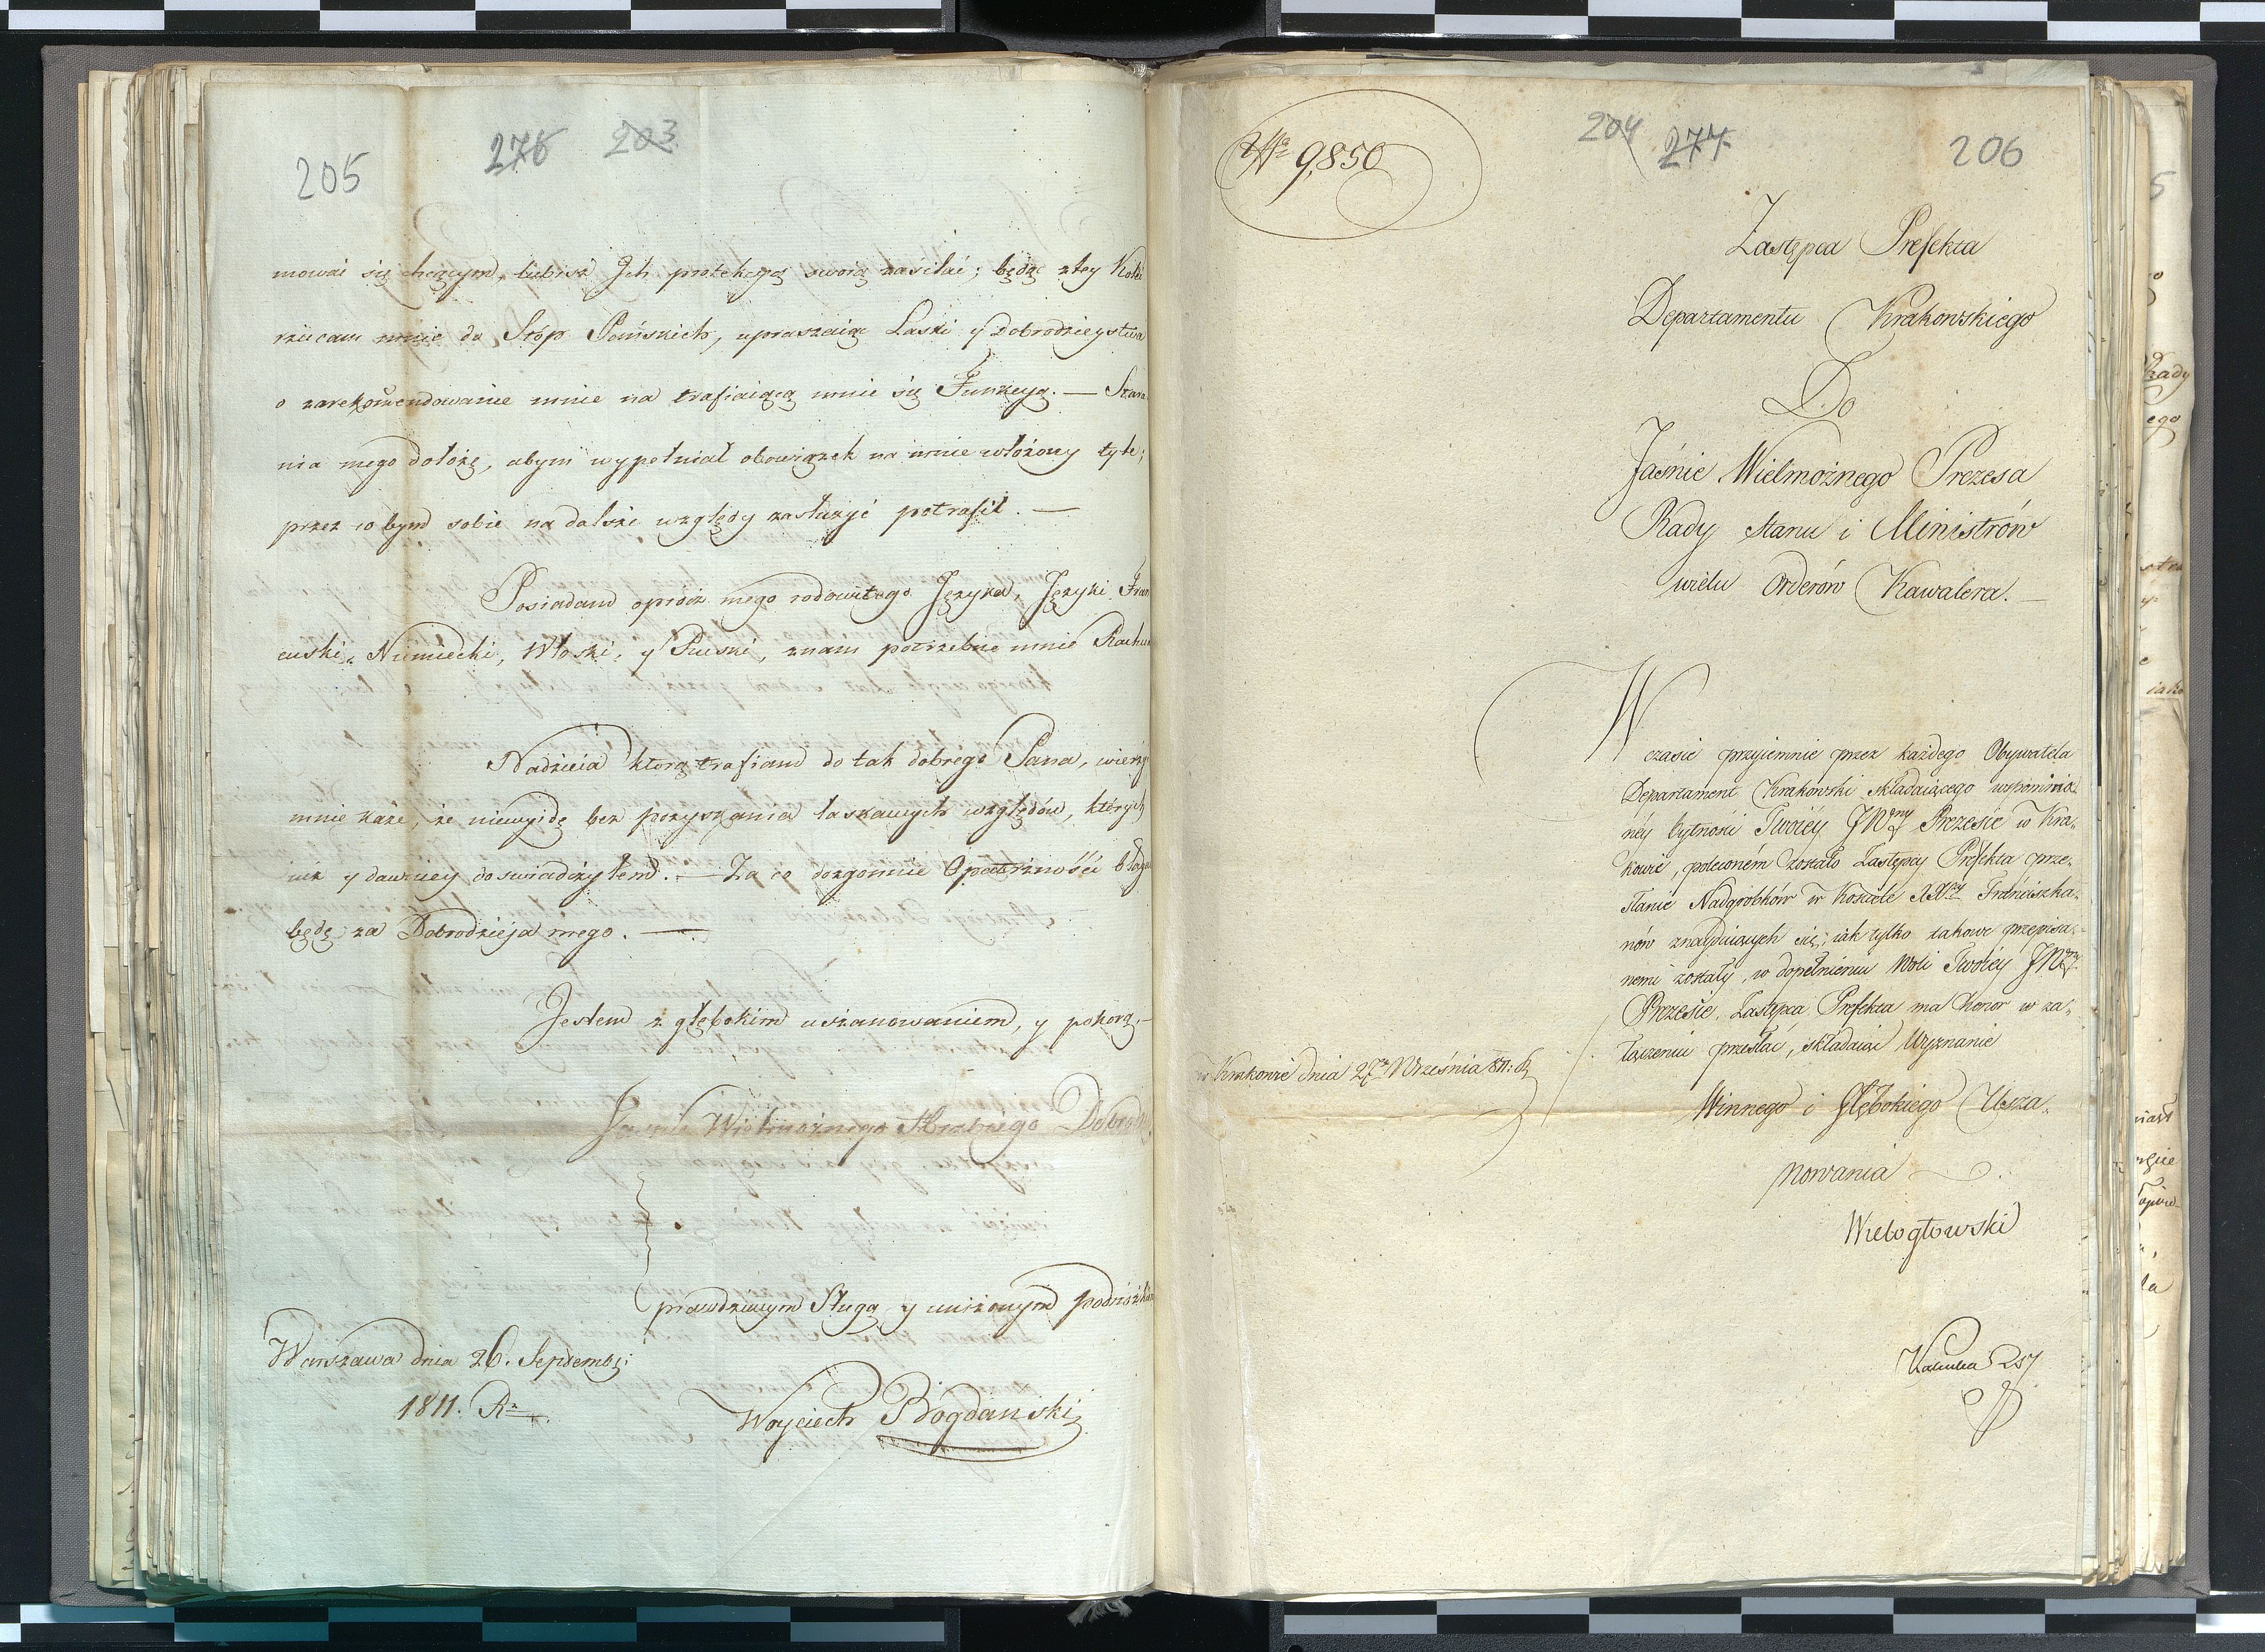 205
276 203
mować się chcącym, lubisz Ich protekcyą swoią zasilać; będąc z tey Kolei
rzucam mnie do Stóp Pańskich, upraszaiąc Łaski y Dobrodzieystwa
o zarekomendowanie mnie na trafiaiącą mnie się Funkcyą. — Stara
nia mego dołożę, abym wypełniał obowiązek na mnie włożony tyle;
przez co bym sobie na dalsze względy zasłużyć potrafił. —
Posiadam oprócz mego rodowitego Języka, Języki Fran
cuski, Niemiecki, Włoski, y Ruski, znam potrzebne mnie Rachu
Nadzieia którą trafiam do tak dobrego Pana, wierzyć
mnie każe, że niewyidę bez pozyskania łaskawych względów, których
iuż y dawniey doswiadczyłem. — Za co dozgonnie Opatrzności błagać
będę za Dobrodzieja mego. —
Jestem z głębokim uszanowaniem, y pokorą. —
Jaśnie Wielmożnego Hrabiego Dobrodz
prawdziwym Sługą y uniżonym podnóżkiem
Warszawa dnia 26. Septembr:
1811. Ra
Woyciech Bogdański
No 9,850
204 277
206
Zastępca Prefekta
Departamentu Krakowskiego
Do
Jaśnie Wielmożnego Prezesa
Rady Stanu i Ministrów
wielu Orderów Kawalera. —
W
czasie przyiemnie przez każdego Obywatela
Departament Krakowski składaiącego wspominio„
néy bytności Twoiéy JWny Prezesie w Kra„
kowie, poleconém zostało Zastępcy Prefekta prze„
słanie Nadgrobków w Kościele XX. Franciszka„
nów znayduiących się; iak tylko takowe przepisa„
nemi zostały, w dopełnieniu Woli Twoiéy JWny
Prezesie, Zastępca Prefekta ma honor w za„
łączeniu przesłać, składaiąc Wyznanie
w Krakowie dnia 27go Września 811. R.
Winnego i Głębokiego Usza„
nowania
Wielogłowski
Kalinka